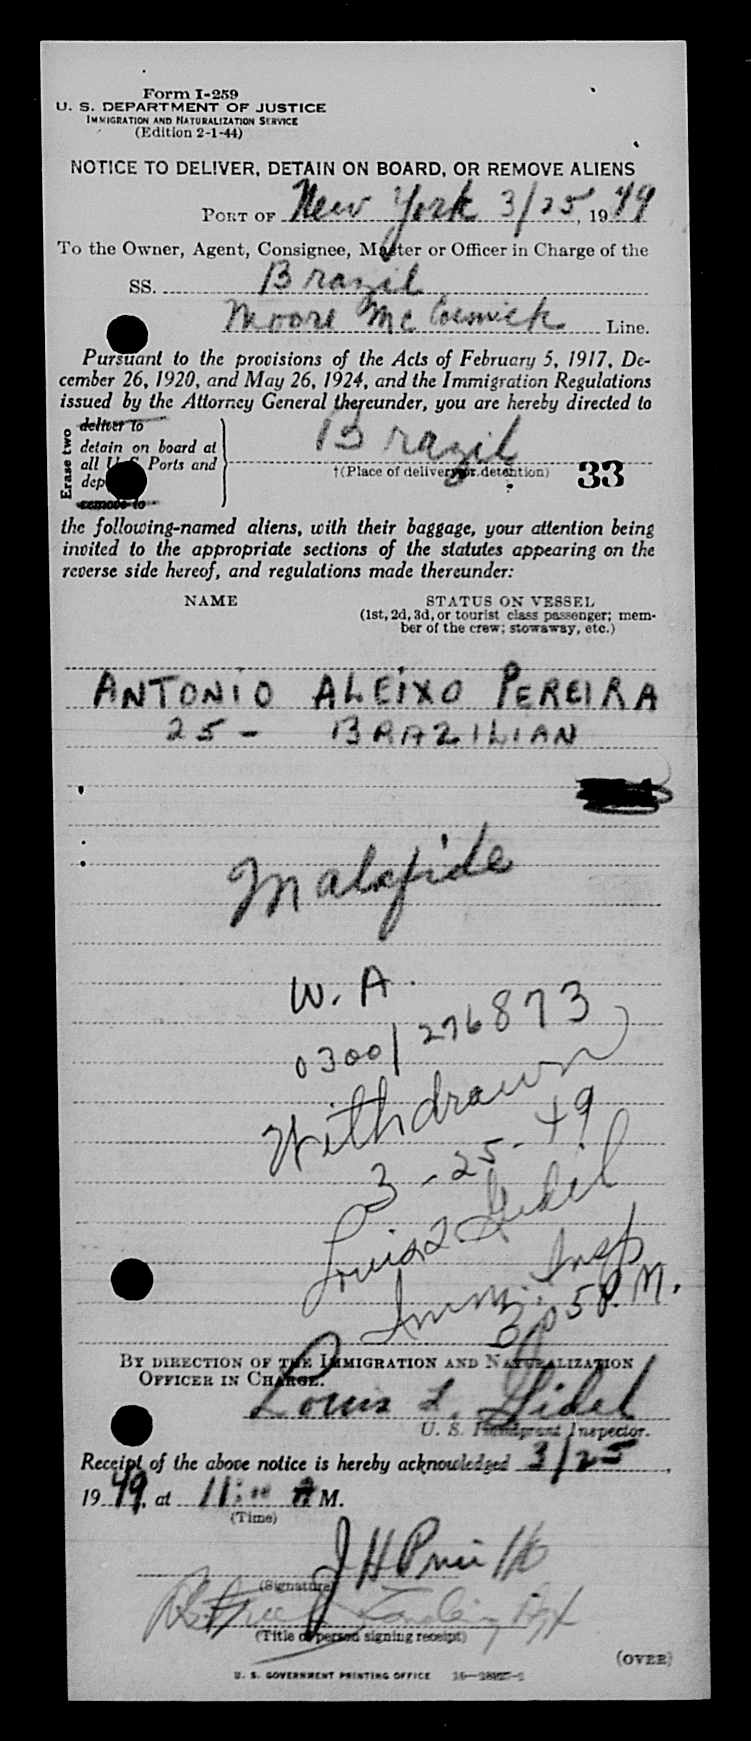 Form I-259
U. S. DEPARTMENT OF JUSTICE
IMMIGRATION AND NATURALIZATION SERVICE
(Edition 2-1-44)
NOTICE TO DELIVER, DETAIN ON BOARD, OR REMOVE ALIENS
PORT OF New York 3/25, 1949
To the Owner, Agent, Consignee, Master or Officer in Charge of the
SS. Brazil
Moore McCormick Line.
Pursuant to the provisions of the Acts of February 5, 1917, De-
cember 26, 1920, and May 26, 1924, and the Immigration Regulations
issued by the Attorney General thereunder, you are hereby directed to
Erase two
deliver to
detain on board at
all U.S. Ports and
dep
remove to
Brazil
†(Place of delivery or detention)
33
the following-named aliens, with their baggage, your attention being
invited to the appropriate sections of the statutes appearing on the
reverse side hereof, and regulations made thereunder:
NAME STATUS ON VESSEL
(1st, 2d, 3d, or tourist class passenger; mem-
ber of the crew; stowaway, etc.)
ANTONIO ALEIXO PEREIRA
25 - BRAZILIAN
Malafide
W. A.
0300/276873
Withdrawn
3-25-49
Louis L Gidel
Imm. Insp
P.M.
BY DIRECTION OF THE IMMIGRATION AND NATURALIZATION
OFFICER IN CHARGE.
Louis L. Gidel
U. S. Immigrant Inspector.
Receipt of the above notice is hereby acknowledged 3/25,
1949, at 11:00 A M.
(Time)
J H
(Signature)
(Title of person signing receipt)
(OVER)
U. S. GOVERNMENT PRINTING OFFICE